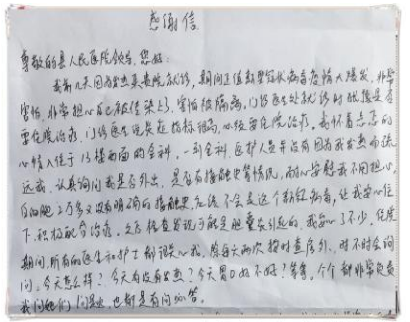 感谢信
尊敬的县人民医院领导,您好:
我前几天因为发热来贵院就诊,期间正值新型冠状病毒疫情大爆发,非常
害怕,非常担心自己被传染上,害怕被隔离,门诊医生处就诊时就说是否
要住院治疗,门诊医生说炎症指标很高,必须要住院治疗。我怀着忐忑的
心情入住了13楼西面的全科,一到全科,医护人员并没有因为我发热而疏
远我,认真询问我是否外出,是否有接触史等情况,耐心安慰我不用担心,
白细胞2万多又没有明确的接触史应该不会是这个新冠病毒,让我安心住
下,积极配合治疗。之后检查发现可能是胆囊炎引起的,我安心了不少,住院
期间所有的医生和护士都很关心我,除每天两次按时查房外,时不时会询
问:今天怎么样?今天有没有发热?今天胃口好不好?等等,个个都非常负责
我问她们问题,也都是有问必答。